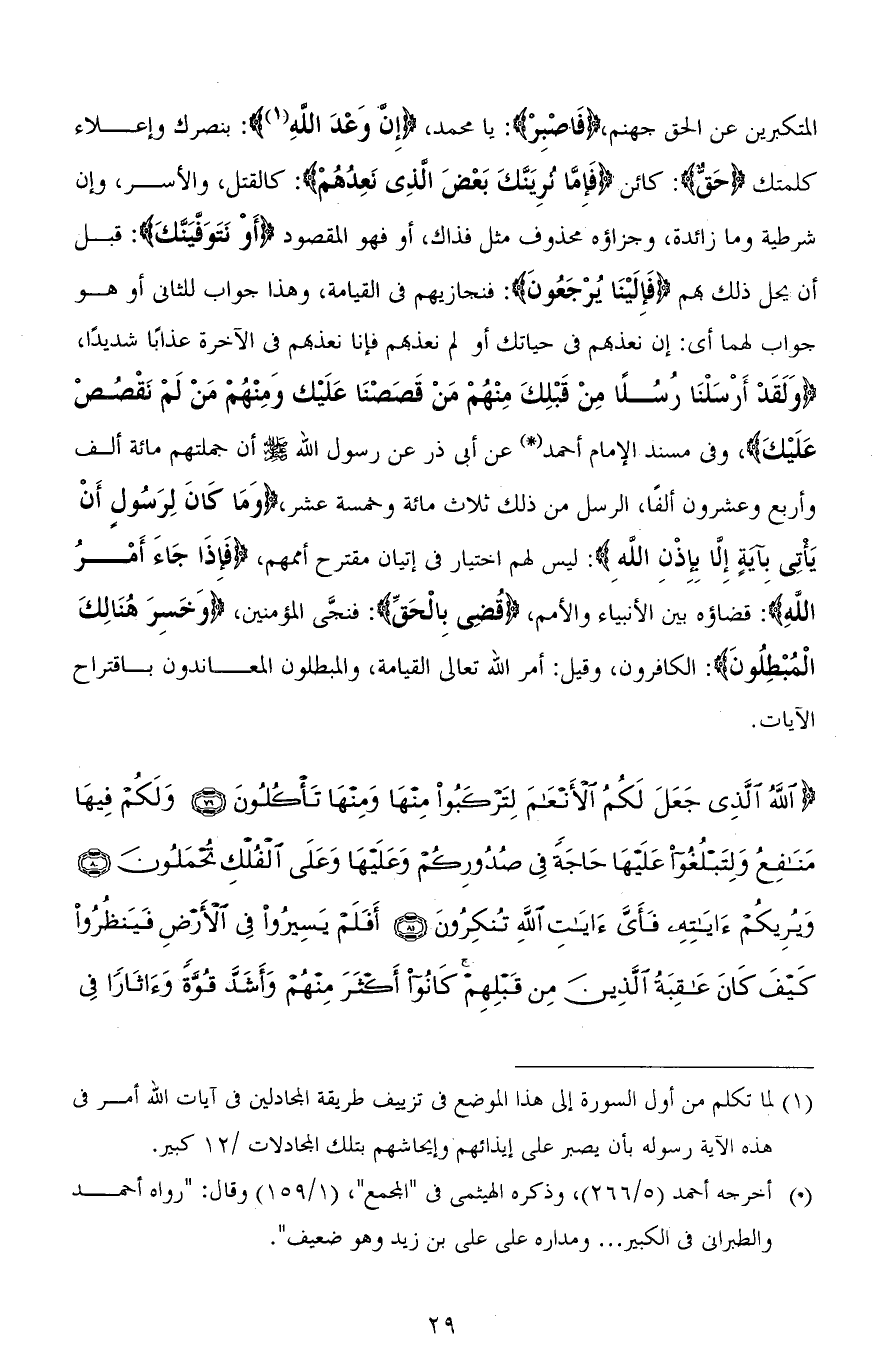 المتكبرين عن الحق جهنم، ﴿فَاصْبِرْ﴾: يا محمد، ﴿إِنَّ وَعْدَ اللَّهِ(١)﴾: بنصرك وإعـــــلاء
كلمتك ﴿حَقٌّ﴾: كائن ﴿فَإِمَّا نُرِيَنَّكَ بَعْضَ الَّذِى نَعِدُهُمْ﴾: كالقتل، والأســـر، وإن
شرطية وما زائدة، وجزاؤه محذوف مثل فذاك، أو فهو المقصود ﴿أَوْ نَتَوَفَّيَنَّكَ﴾: قبـــل
أن يحل ذلك بهم ﴿فَإِلَيْنَا يُرْجَعُونَ﴾: فنجازيهم فى القيامة، وهذا جواب للثانى أو هـــو
جواب لهما أى: إن نعذبهم فى حياتك أو لم نعذبهم فإنا نعذبهم فى الآخرة عذابًا شديدًا،
﴿وَلَقَدْ أَرْسَلْنَا رُسُــلًا مِنْ قَبْلِكَ مِنْهُمْ مَنْ قَصَصْنَا عَلَيْكَ وَمِنْهُمْ مَنْ لَمْ نَقْصُــصْ
عَلَيْكَ﴾، وفى مسند الإمام أحمد(*) عن أبى ذر عن رسول الله ﷺ أن جملتهم مائة ألــف
وأربع وعشرون ألفًا، الرسل من ذلك ثلاث مائة وخمسة عشر، ﴿وَمَا كَانَ لِرَسُولٍ أَنْ
يَأْتِى بِآيَةٍ إِلَّا بِإِذْنِ اللَّهِ﴾: ليس لهم اختيار فى إتيان مقترح أممهم، ﴿فَإِذَا جَاءَ أَمْـــرُ
اللَّهِ﴾: قضاؤه بين الأنبياء والأمم، ﴿قُضِى بِالْحَقِّ﴾: فنجَّى المؤمنين، ﴿وَخَسِرَ هُنَالِكَ
الْمُبْطِلُونَ﴾: الكافرون، وقيل: أمر الله تعالى القيامة، والمبطلون المعـــــاندون بـــاقتراح
الآيات.
﴿ ٱللَّهُ ٱلَّذِى جَعَلَ لَكُمُ ٱلْأَنْعَٰمَ لِتَرْكَبُوا۟ مِنْهَا وَمِنْهَا تَأْكُلُونَ ۝٧٩ وَلَكُمْ فِيهَا
مَنَٰفِعُ وَلِتَبْلُغُوا۟ عَلَيْهَا حَاجَةً فِى صُدُورِكُمْ وَعَلَيْهَا وَعَلَى ٱلْفُلْكِ تُحْمَلُونَ ۝٨٠
وَيُرِيكُمْ ءَايَٰتِهِۦ فَأَىَّ ءَايَٰتِ ٱللَّهِ تُنكِرُونَ ۝٨١ أَفَلَمْ يَسِيرُوا۟ فِى ٱلْأَرْضِ فَيَنظُرُوا۟
كَيْفَ كَانَ عَٰقِبَةُ ٱلَّذِينَ مِن قَبْلِهِمْ ۚ كَانُوٓا۟ أَكْثَرَ مِنْهُمْ وَأَشَدَّ قُوَّةً وَءَاثَارًا فِى
(١) لما تكلم من أول السورة إلى هذا الموضع فى تزييف طريقة المجادلين فى آيات الله أمـــر فى
هذه الآية رسوله بأن يصبر على إيذائهم وإيحاشهم بتلك المجادلات /١٢ كبير.
(*) أخرجه أحمد (٢٦٦/٥)، وذكره الهيثمى فى "المجمع"، (١٥٩/١) وقال: "رواه أحمـــد
والطبرانى فى الكبير... ومداره على على بن زيد وهو ضعيف".
٢٩